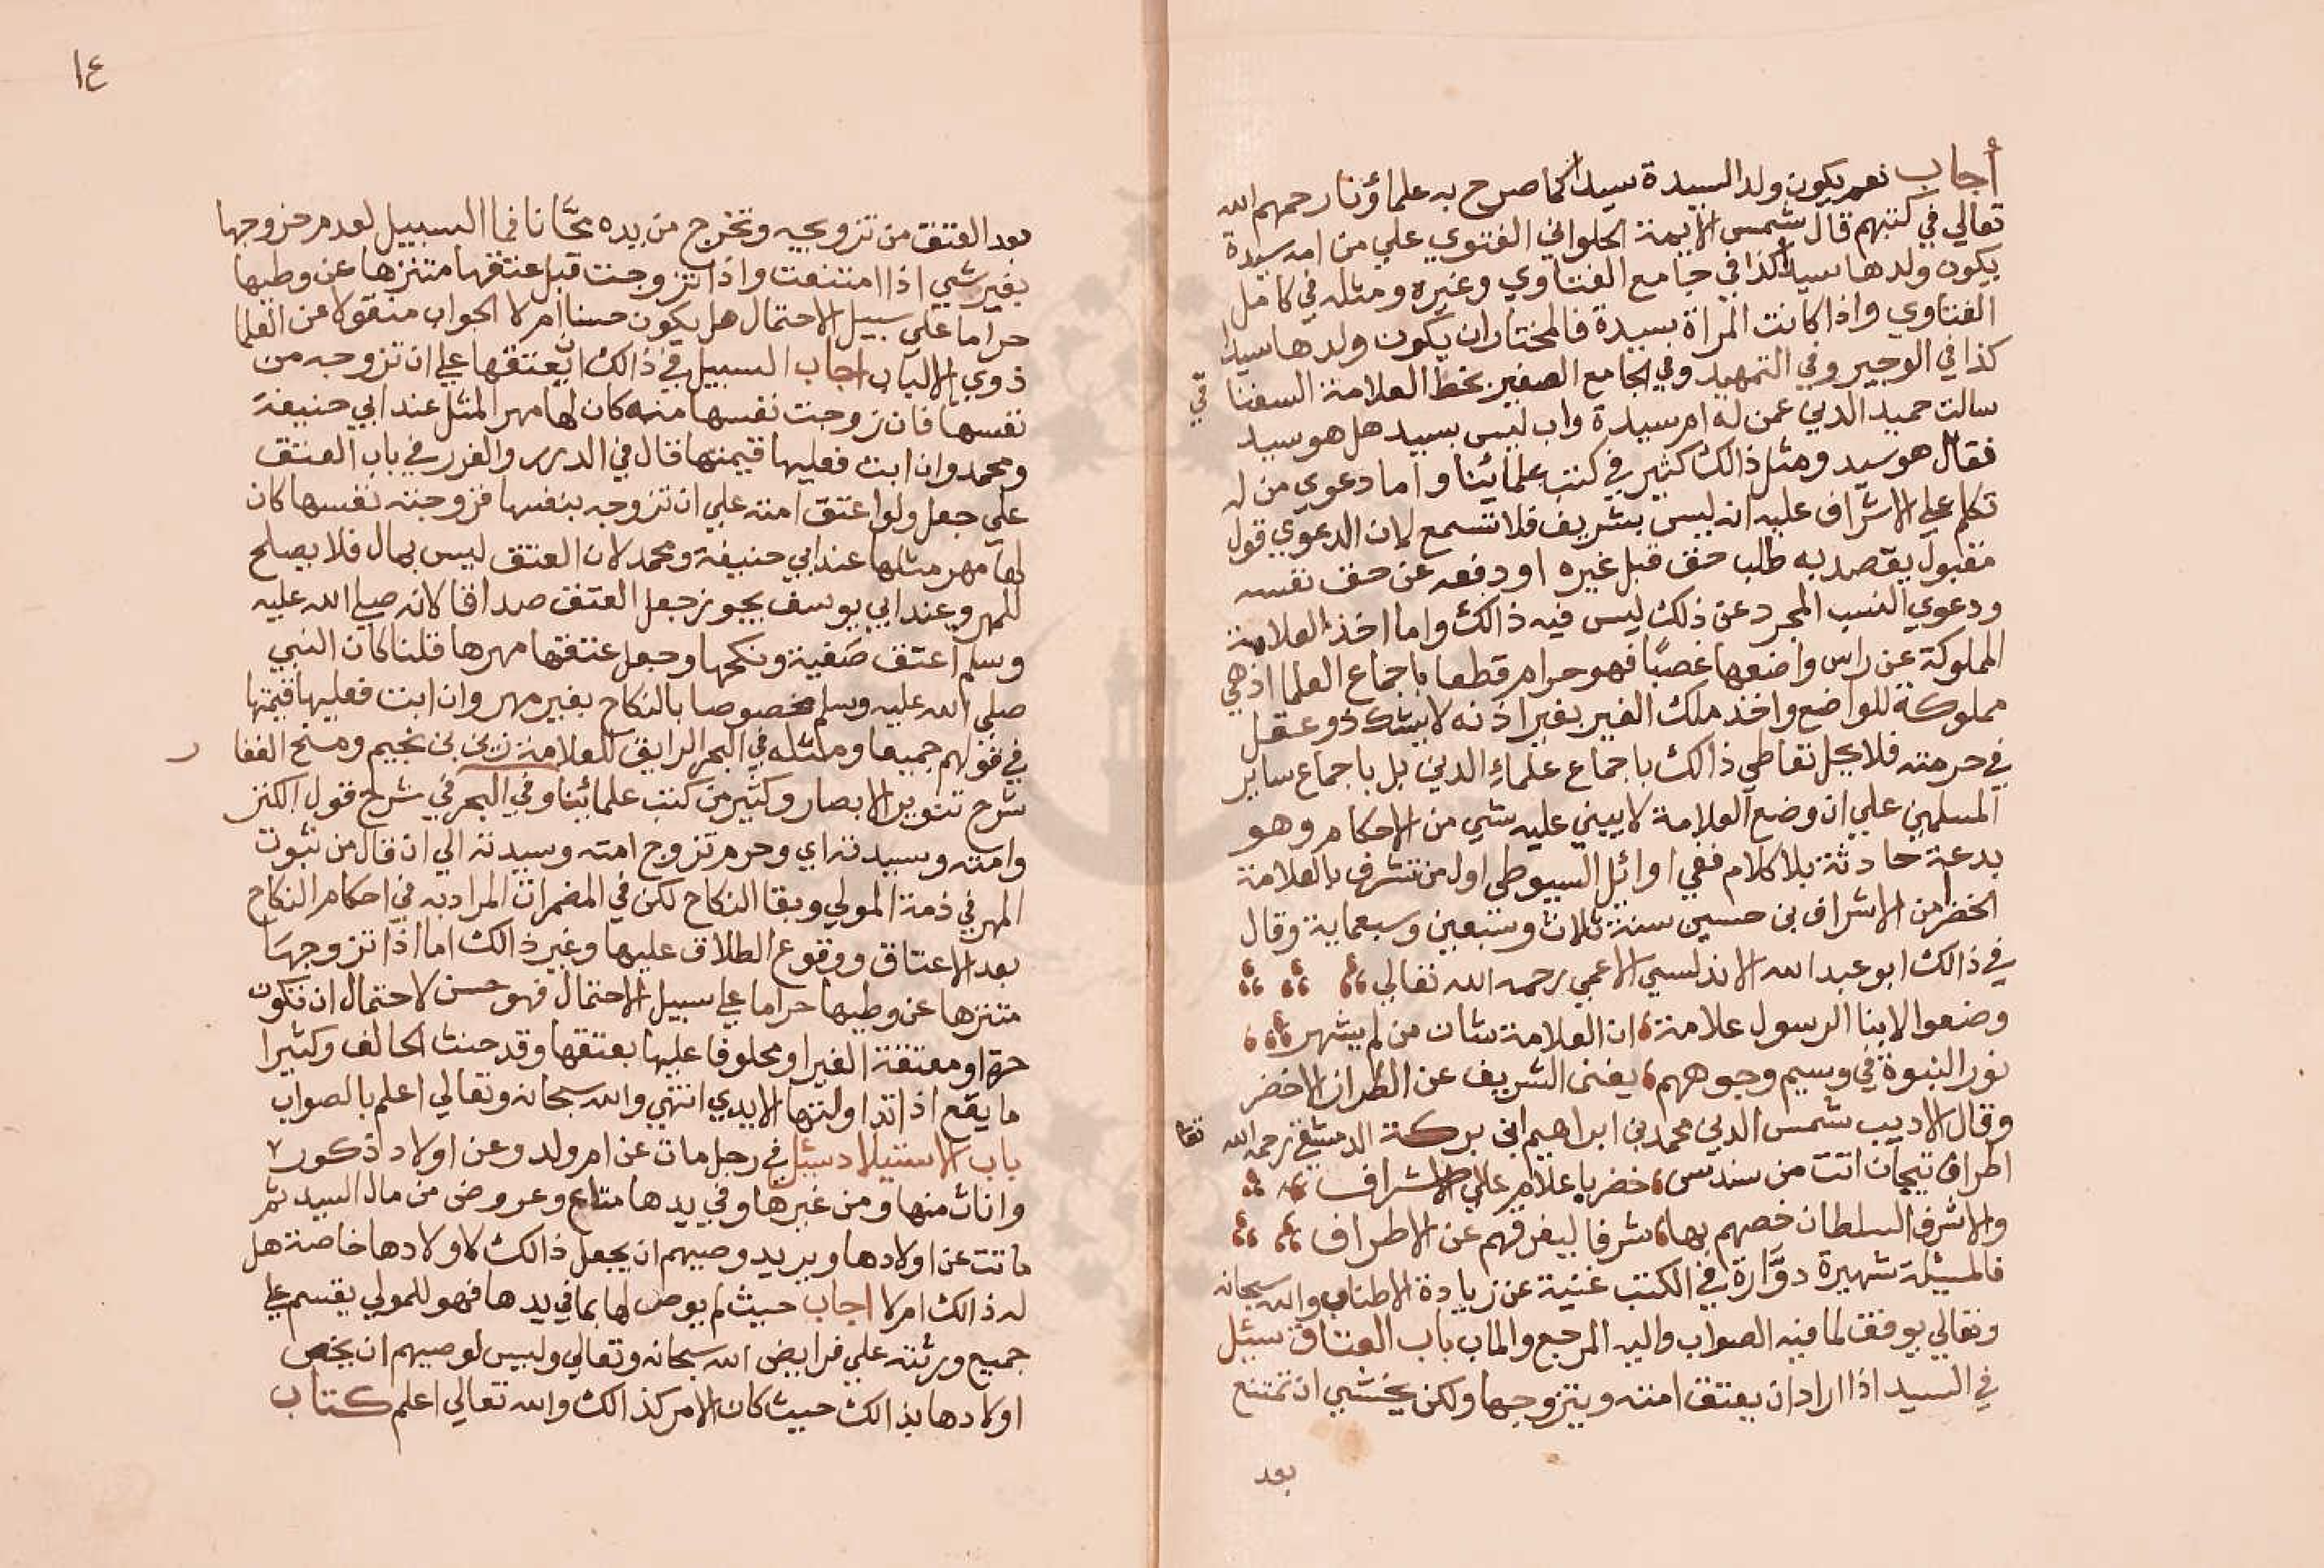 أجاب نعم يكون ولد السيدة سيدا كما صرح به علماؤنا رحمهم الله
تعالي في كتبهم قال شمس الايمة الحلواني الفتوي علي من امه سيدة
يكون ولدها سيدا كذا في جامع الفتاوي وغيره ومثله في كامل
الفتاوي واذا كانت المراة سيدة فالمختار ان يكون ولدها سيدا
كذا في الوجيز وفي التمهيد وفي الجامع الصغير بخط العلامة السغنا قي
سالت حميد الدين عمن له ام سيدة واب ليس بسيد هل هو سيد
فقال هو سيد ومثل ذالك كثير في كتب علمائنا واما دعوي من له
تكلم علي الاشراف عليه انه ليس بشريف فلا تسمع لان الدعوي قول
مقبول يقصد به طلب حق قبل غيره او دفعه عن حق نفسه
ودعوي النسب المجرد عن ذلك ليس فيه ذالك واما اخذ العلامة
المملوكة عن راس واضعها غصبًا فهو حرام قطعا باجماع العلما اذ هي
مملوكة للواضع واخذ ملك الغير بغير اذنه لا يشك ذو عقل
في حرمته فلا يحل تعاطي ذالك باجماع علماء الدين بل باجماع ساير
المسلمين علي ان وضع العلامة لا يبني عليه شي من الاحكام وهو
بدعة حادثة بلا كلام ففي اوائل السيوطي اول من تشرف بالعلامة
الخضر من الاشراف بن حسين سنة ثلاث وسبعين وسبعماية وقال
في ذالك ابو عبد الله الاندلسي الاعمي رحمه الله تعالي
وضعوا لابنا الرسول علامة ان العلامة شان من لم يشهر
نور النبوة في وسيم وجوههم يغني الشريف عن الطراز الاخضر
وقال الاديب شمس الدين محمد بن ابراهيم ابن بركة الدمشقي رحمه الله تعا
اطراف تيجان اتت من سندس خضر باعلام علي الاشراف
والاشرف السلطان خصهم بها شرفا ليفرقهم عن الاطراف
فالمسيلة شهيرة دوّارة في الكتب غنية عن زيادة الاطناب والله سبحانه
وتعالي يوفق لما فيه الصواب واليه المرجع والماب باب العتاق سيل
في السيد اذا اراد ان يعتق امته ويتزوجها ولكن يخشي ان تمتنع
بعد
١٤
بعد العتق من تزويجيه وتخرج من يده مجّانا فما السبيل لعدم خروجها
بغير شي اذا امتنعت واذا تزوجت قبل عتقها متنزها عن وطيها
حراما علي سبيل الاحتمال هل يكون حسنا ام لا الجواب منقولا من العلما
ذوي الالباب اجاب السبيل في ذالك ان يعتقها علي ان تزوجه من
نفسها فان زوجت نفسها منه كان لها مهر المثل عند ابي حنيفة
ومحمد وان ابت فعليها قيمتها قال في الدرر والغرر في باب العتق
علي جعل ولو اعتق امته علي ان تزوجه بنفسها فزوجته نفسها كان
لها مهر مثلها عند ابي حنيفة ومحمد لان العتق ليس بمال فلا يصلح
للمهر وعند ابي يوسف يجوز جعل العتق صداقا لانه صلي الله عليه
وسلم اعتق صَفية ونكحها وجعل عتقها مهرها قلنا كان النبي
صلي الله عليه وسلم مخصوصا بالنكاح بغير مهر وان ابت فعليها قيمتها
في قولهم جميعا ومثله في البحر الرايق للعلامة زين بن نجيم ومنح الغفا ر
شرح تنوير الابصار وكثير من كتب علمائنا وفي البحر في شرح قول الكنز
وامته وسيدته اي وحرم تزوج امته وسيدته الي ان قال من ثبوت
المهر في ذمة المولي وبقا النكاح لكن في المضمرات المراد به في احكام النكاح
بعد الاعتاق ووقوع الطلاق عليها وغير ذالك اما اذا تزوجهَا
متنزها عن وطيها حراما علي سبيل الاحتمال فهو حسن لاحتمال ان تكون
حرة او معتقة الغير او محلوفا عليها بعتقها وقد حنث الحالف وكثيرا
ما يقع اذا تداولتها الايدي انتهي والله سبحانه وتعالي اعلم بالصواب
باب الاستيلاد سيل في رجل مات عن ام ولد وعن اولاد ذكور
واناث منها ومن غيرها وفي يدها متاع وعروض من مال السيد ثم
ماتت عن اولادها ويريد وصيهم ان يجعل ذالك لاولادها خاصة هل
له ذالك ام لا اجاب حيث لم يوص لها بما في يدها فهو للمولي يقسم علي
جميع ورثته علي فرايض الله سبحانه وتعالي وليس لوصيهم ان يخص
اولادها بذالك حيث كان الامر كذالك والله تعالي اعلم كتاب